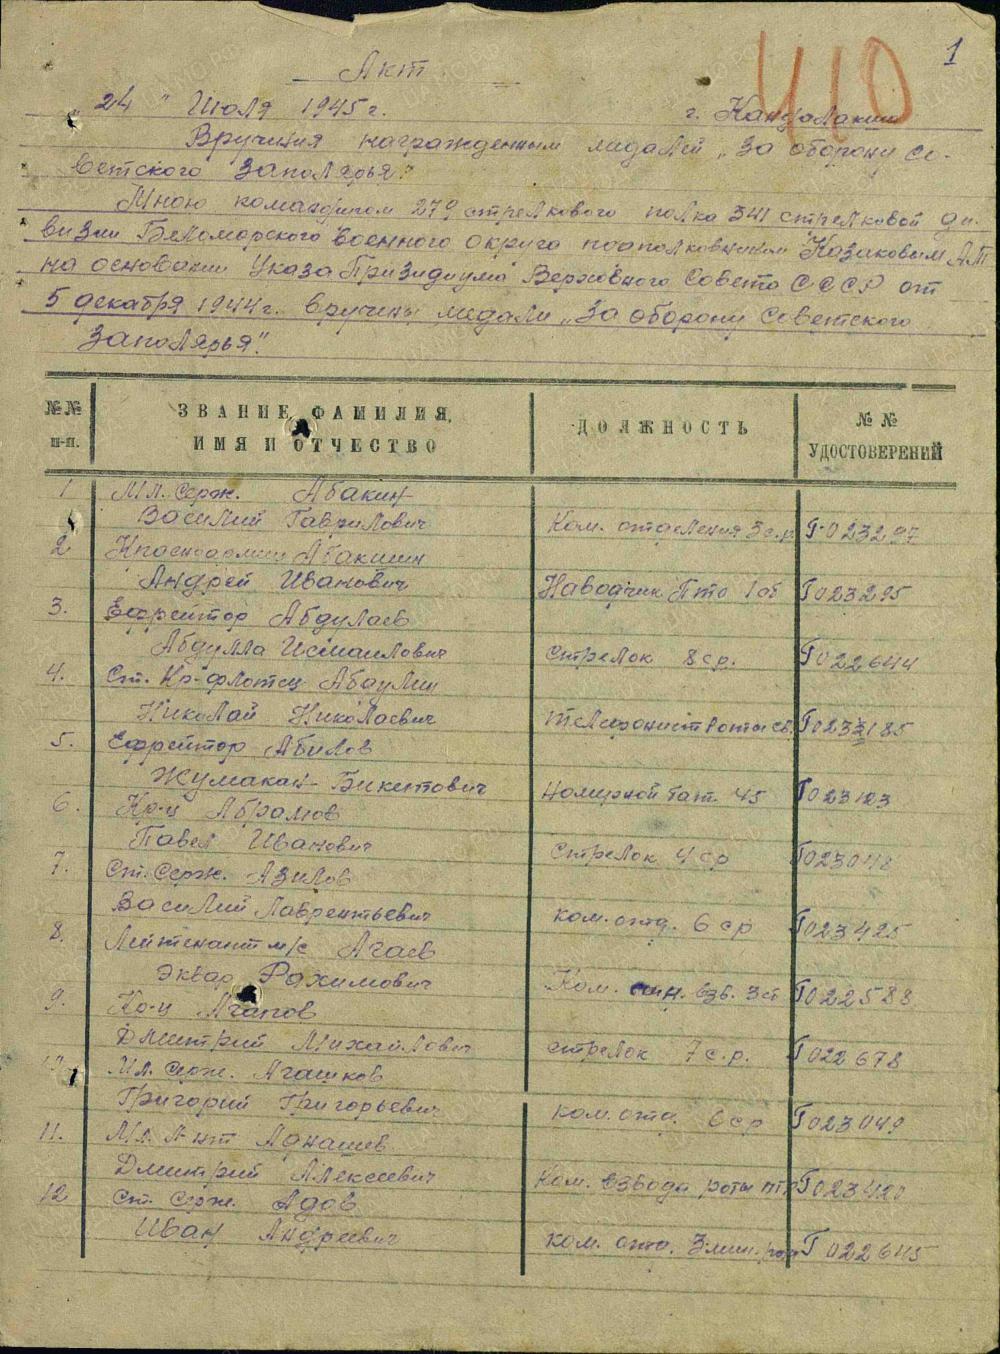 1
410
Акт
"24" Июля 1945 г. г. Кандалакша
Вручения награжденным медалей „За оборону Со-
ветского Заполярья"
Мною командиром 279 стрелкового полка 341 стрелковой ди-
визии Беломорского военного округа подполковником Казаковым А.Т.
на основании Указа Призидиума Верховного Совета СССР от
5 декабря 1944 г. вручены медали „За оборону Советского
Заполярья".
№№ п-п. ЗВАНИЕ, ФАМИЛИЯ, ИМЯ И ОТЧЕСТВО ДОЛЖНОСТЬ №№ УДОСТОВЕРЕНИЙ
1 Мл. серж. Абакин
Василий Гаврилович Ком. отделения 3 с.р. Г 023297
2 Красноармеец Абакшин
Андрей Иванович Наводчик Пто 1 сб Г 023295
3. Ефрейтор Абдулаев
Абдулла Исмаилович стрелок 8 ср. Г 022644
4. Ст. Кр-флотец Абаулин
Николай Николаевич телефонист роты св. Г 023185
5. Ефрейтор Абилов
Жумакан Бикитович номерной бат. 45 Г 023123
6. Кр-ц Абрамов
Павел Иванович Стрелок 4 ср Г 023048
7. Ст. Серж. Азилов
Василий Лаврентьевич ком. отд. 6 ср Г 023425
8. Лейтенант м/с Агаев
Эквар Рахимович Ком. сан. взв. 3 сб Г 022588
9. Кр-ц Агапов
Дмитрий Михайлович стрелок 7 с.р. Г 022678
10. Мл. Серж. Агашков
Григорий Григорьевич ком. отд. 6 ср Г 023049
11. Мл. л-нт Аднашев
Дмитрий Алексеевич Ком. взвода роты птр Г 023420
12 Ст. Серж. Адов
Иван Андреевич ком. отд. 3 мин. роты Г 022645